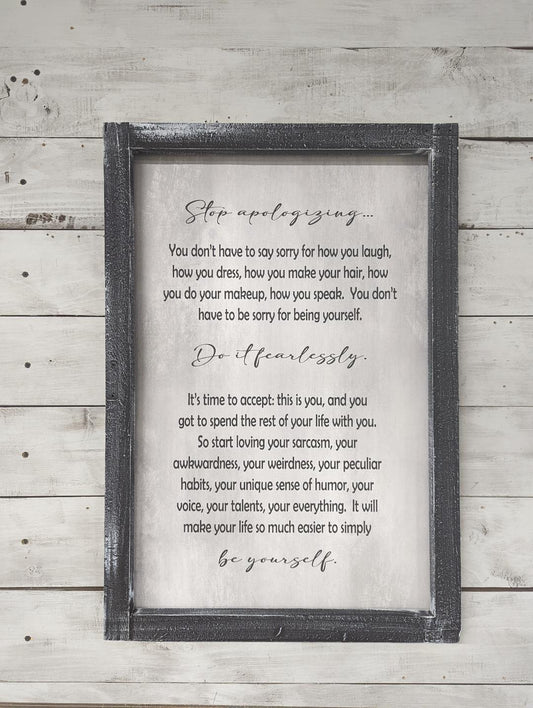 Stop apologizing...
You don't have to say sorry for how you laugh,
how you dress, how you make your hair, how
you do your makeup, how you speak. You don't
have to be sorry for being yourself.
Do it fearlessly.
It's time to accept: this is you, and you
got to spend the rest of your life with you.
So start loving your sarcasm, your
awkwardness, your weirdness, your peculiar
habits, your unique sense of humor, your
voice, your talents, your everything. It will
make your life so much easier to simply
be yourself.